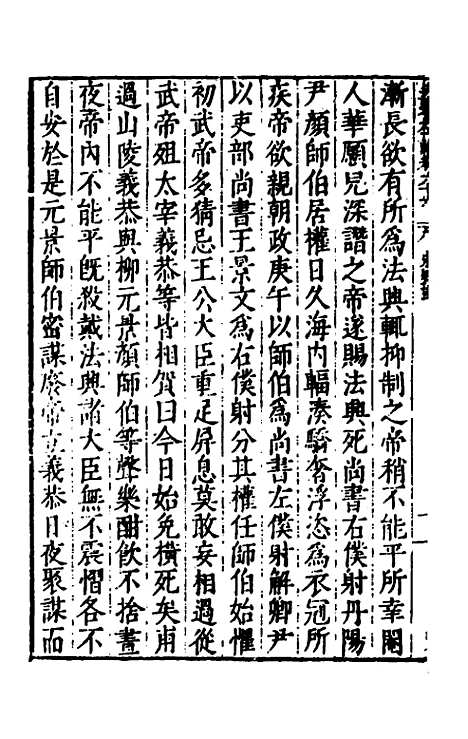 漸長欲有所爲法興輒抑制之帝稍不能平所幸閹
人華願兒深譖之帝遂賜法興死尚書右僕射丹陽
尹顔師伯居權日久海内輻湊驕奢浮恣爲衣冠所
疾帝欲親朝政庚午以師伯爲尚書左僕射解卿尹
以吏部尚書王景文爲右僕射分其權任師伯始懼
初武帝多猜忌王公大臣重足屏息莫敢妄相過從
武帝殂太宰義恭等皆相賀曰今日始免橫死矣甫
過山陵義恭與柳元景顔師伯等聲樂酣飲不捨晝
夜帝内不能平旣殺戴法興諸大臣無不震慴各不
自安於是元景師伯密謀廢帝立義恭日夜聚謀而